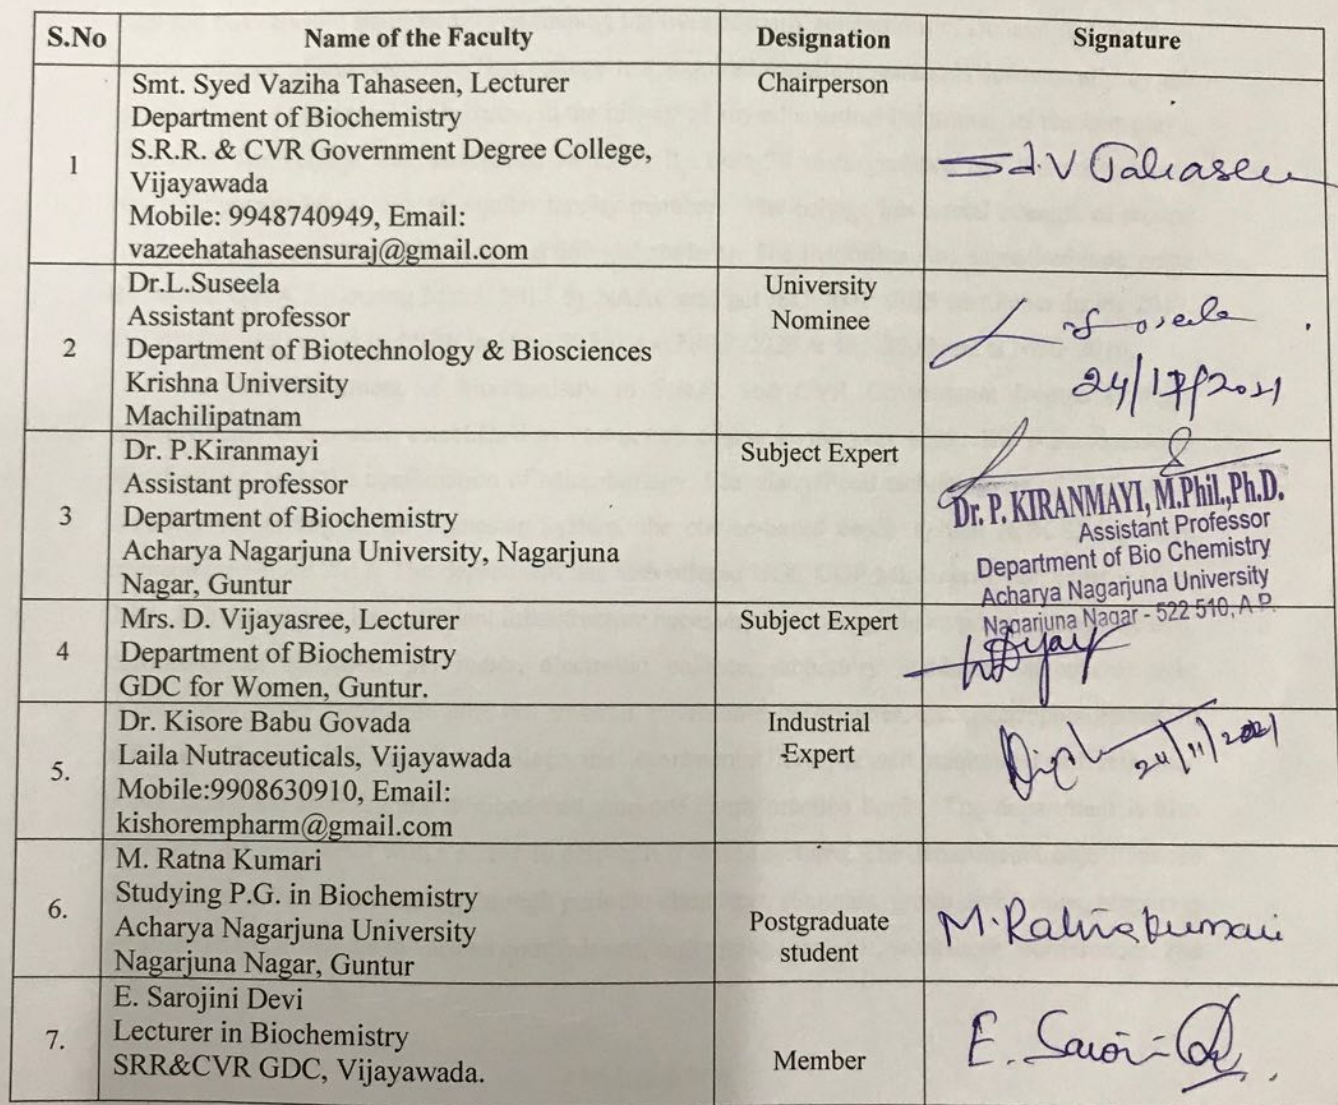 S.No Name of the Faculty Designation Signature
1
Smt. Syed Vaziha Tahaseen, Lecturer
Department of Biochemistry
S.R.R. & CVR Government Degree College,
Vijayawada
Mobile: 9948740949, Email:
vazeehatahaseensuraj@gmail.com
Chairperson
Sd.V Tahaseen
2
Dr.L.Suseela
Assistant professor
Department of Biotechnology & Biosciences
Krishna University
Machilipatnam
University
Nominee
3
Dr. P.Kiranmayi
Assistant professor
Department of Biochemistry
Acharya Nagarjuna University, Nagarjuna
Nagar, Guntur
Subject Expert
Dr. P. KIRANMAYI, M.Phil.,Ph.D.
Assistant Professor
Department of Bio Chemistry
Acharya Nagarjuna University
Nagarjuna Nagar - 522 510, A P.
4
Mrs. D. Vijayasree, Lecturer
Department of Biochemistry
GDC for Women, Guntur.
Subject Expert
5.
Dr. Kisore Babu Govada
Laila Nutraceuticals, Vijayawada
Mobile:9908630910, Email:
kishorempharm@gmail.com
Industrial
Expert
24/11/2021
6.
M. Ratna Kumari
Studying P.G. in Biochemistry
Acharya Nagarjuna University
Nagarjuna Nagar, Guntur
Postgraduate
student
M. Ratna kumari
7.
E. Sarojini Devi
Lecturer in Biochemistry
SRR&CVR GDC, Vijayawada.
Member
E. Saroi